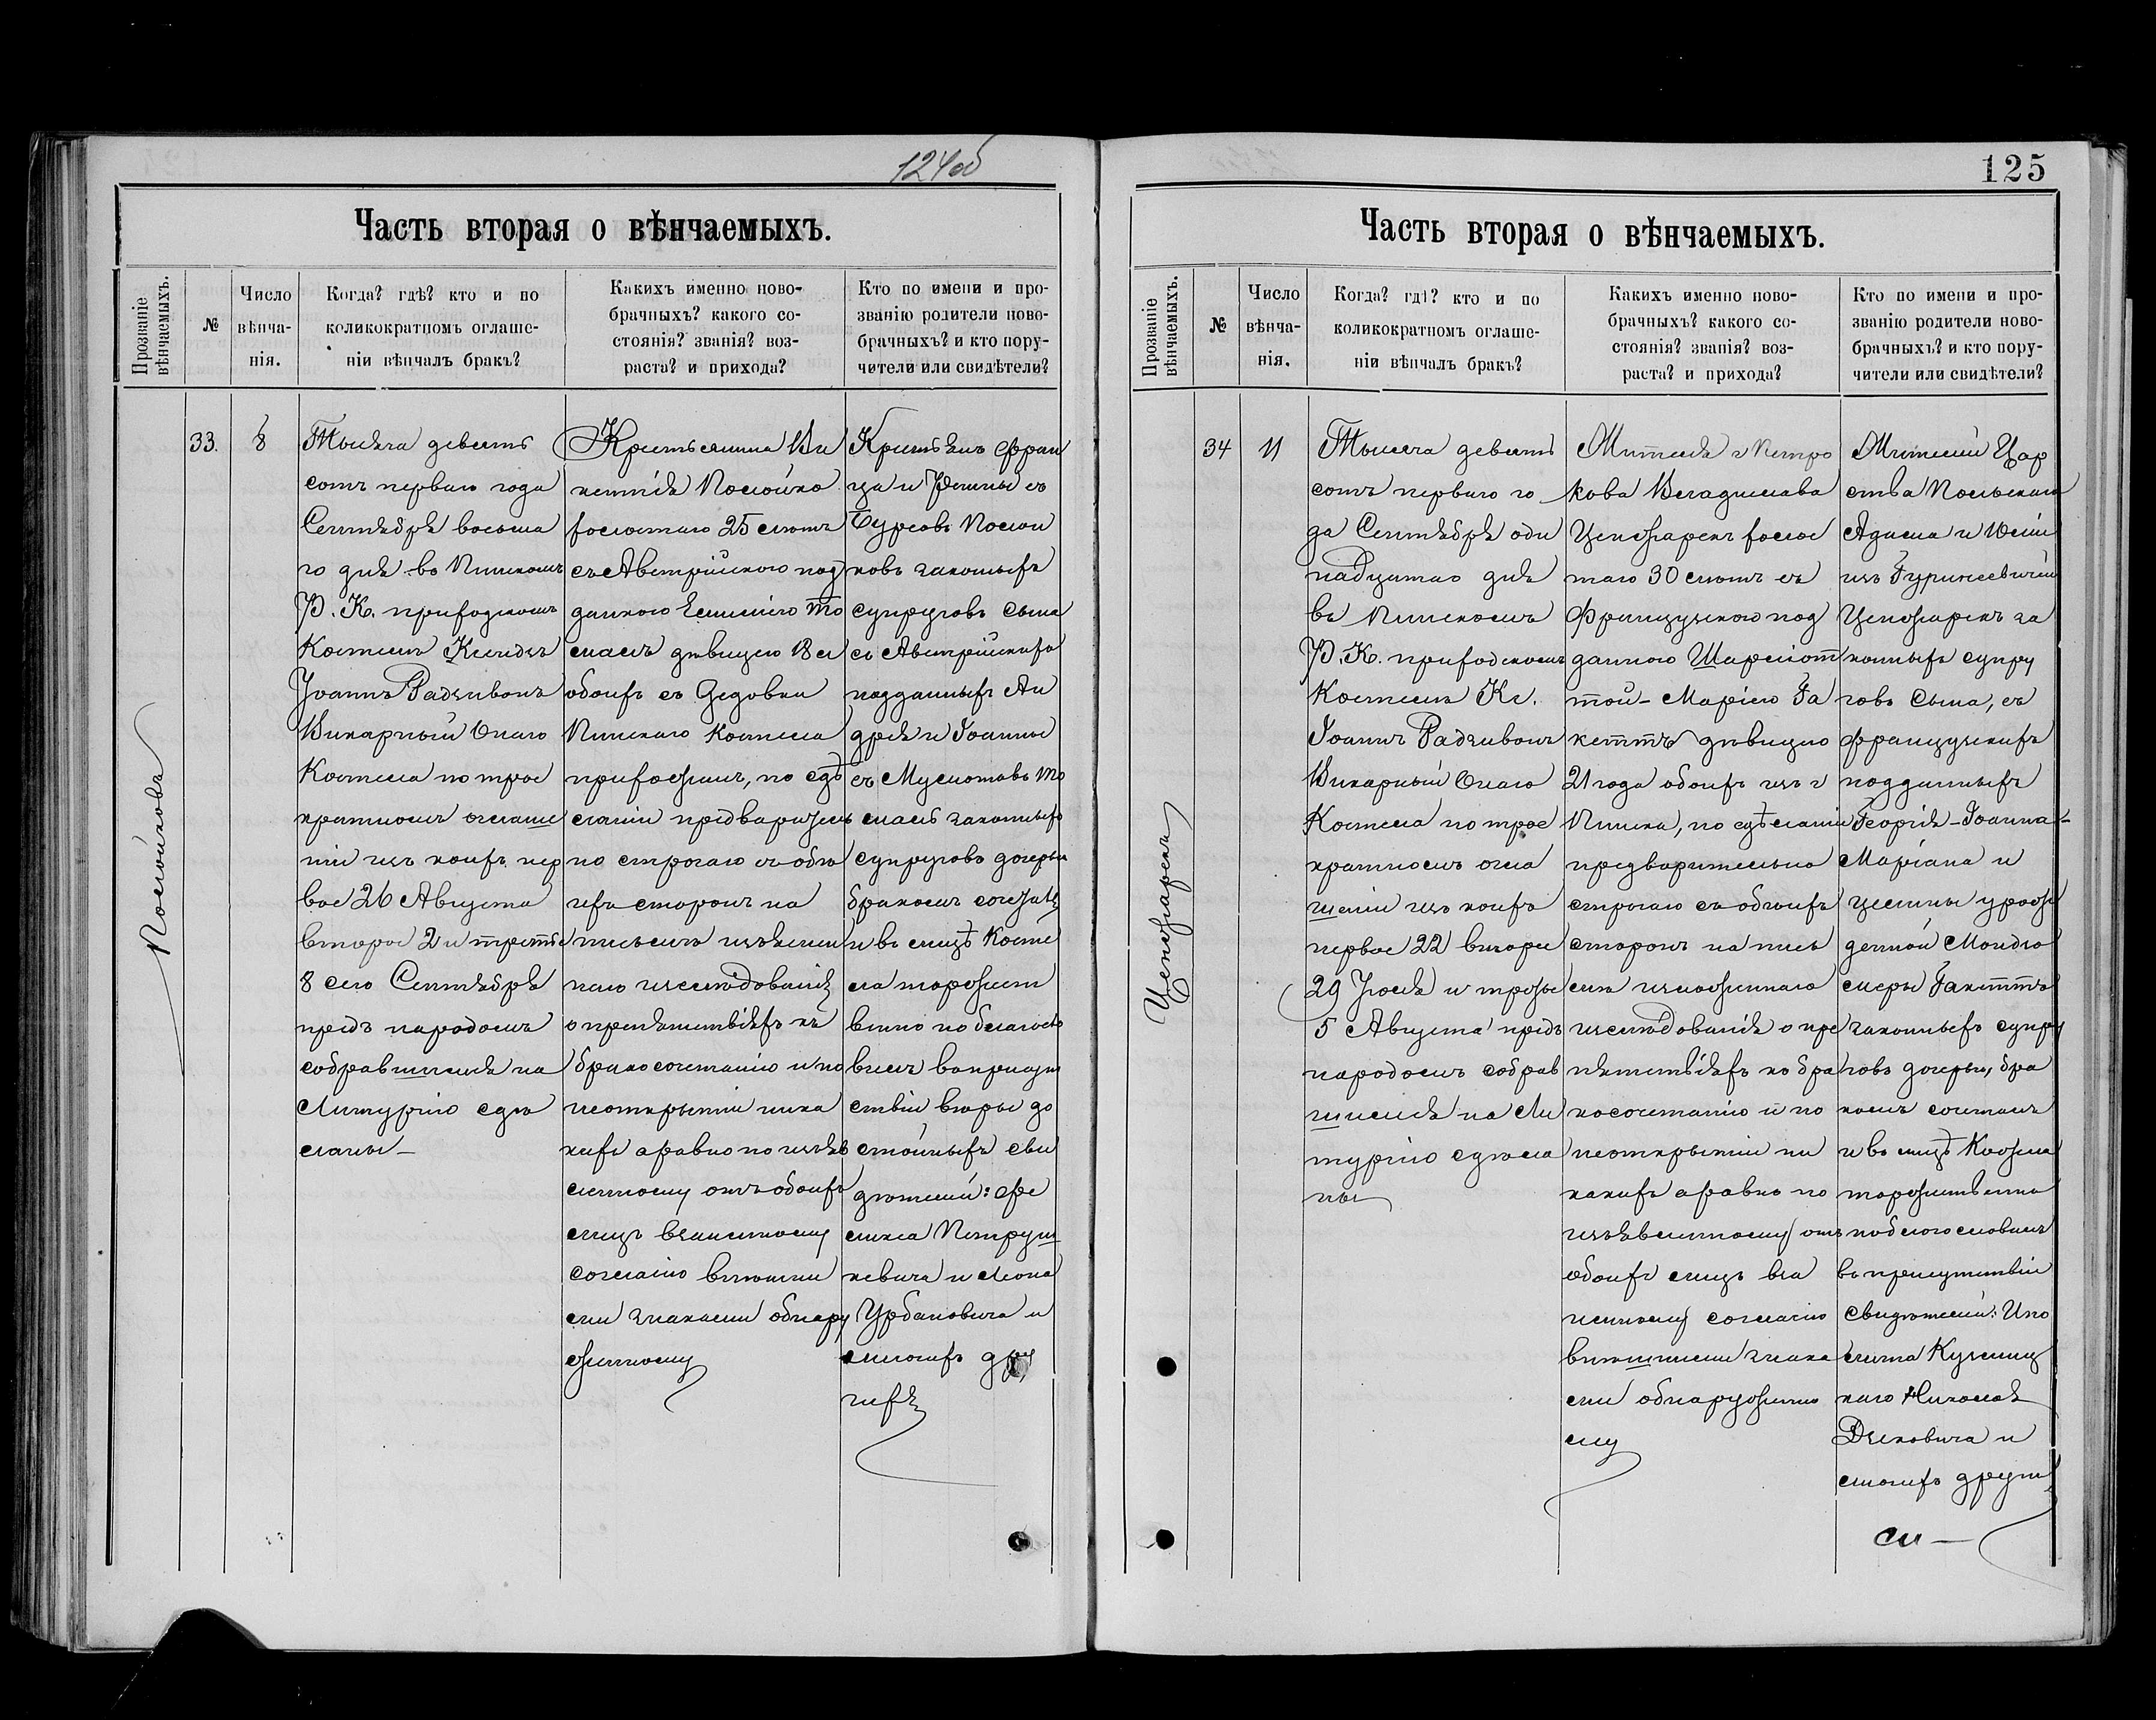 124об
Часть вторая о вѣнчаемыхъ.
Прозваніе
вѣнчаемыхъ.
№
Число
вѣнча-
нія.
Когда? гдѣ? кто и по
коликократномъ оглаше-
ніи вѣнчалъ бракъ?
Какихъ именно ново-
брачныхъ? какого со-
стоянія? званія? воз-
раста? и прихода?
Кто по имени и про-
званію родители ново-
брачныхъ? и кто пору-
чители или свидѣтели?
33.
8
Тысяча девять
сотъ перваго года
Сентября восьма
го дня въ Пинскомъ
Р. К. приходскомъ
Костелѣ Ксендзъ
Іоаннъ Радзивонъ
Викарный Онаго
Костела по трое
кратномъ оглаше
ніи изъ коихъ пер
вое 26 Августа
второе 2 и третье
8 сего Сентября
предъ народомъ
собравшимся на
Литургію сдѣ
ланы—
Крестьянина Ви
кентія Послойко
холостаго 25 лѣтъ
съ Австрійского под
данною Емилію То
масъ дѣвицею 18 л
обоихъ съ Дедовки
Пинскаго Костела
прихожанъ, по сдѣ
ланіи предварительно
строгаго съ обо
ихъ сторонъ на
письмѣ
наго изслѣдованія
о препятствіяхъ къ
бракосочетанію и по
неоткрытіи ника
кихъ а равно по изъяв
ленному отъ обоихъ
лицъ взаимному
согласію внѣшни
ми знаками обнару
женному
Крестьянъ Фран
ца и съ
Послой
ковъ законныхъ
супруговъ сына
съ Австрійскихъ
подданныхъ Ан
дрея и Іоанны
съ То
масъ законныхъ
супруговъ дочерью
бракомъ сочеталъ
и въ лицѣ Косте
ла торжест
венно благосло
вилъ въ присут
ствіи вѣры до
стойныхъ сви
дѣтелей: Фе
ликса Петруш
кевича и Леона
Урбановича и
многихъ дру
гихъ
Послойковъ
125
Часть вторая о вѣнчаемыхъ.
Прозваніе
вѣнчаемыхъ.
№
Число
вѣнча-
нія.
Когда? гдѣ? кто и по
коликократномъ оглаше-
ніи вѣнчалъ бракъ?
Какихъ именно ново-
брачныхъ? какого со-
стоянія? званія? воз-
раста? и прихода?
Кто по имени и про-
званію родители ново-
брачныхъ? и кто пору-
чители или свидѣтели?
34
11
Тысяча девять
сотъ перваго го
да Сентября оди
надцатаго дня
въ Пинскомъ
Р. К. приходскомъ
Костелѣ Кс.
Іоаннъ Радзивонъ
Викарный Онаго
Костела по трое
кратномъ огла
шеніи изъ коихъ
первое 22 второе
29 Іюля и третье
5 Августа предъ
народомъ собрав
шимся на Ли
тургію сдѣла
ны
Жителя г Петро
кова Владислава
Ценжарекъ холос
таго 30 лѣтъ съ
Французскою под
данною Шарлот
той-Маріею Га
кеттъ дѣвицею
21 года обоихъ изъ г
Пинска, по сдѣланіи
предварительно
строгаго съ обоихъ
сторонъ на пись
мѣ изложеннаго
изслѣдованія о пре
пятствіяхъ ко бра
косочетанію и по
неоткрытіи ни
какихъ а равно по
изъявленному отъ
обоихъ лицъ вза
имному согласію
внѣшними знака
ми обнаруженно
му
Жителей Цар
ства Польскаго
Адама и Юліи
изъ Гуриневичей
Ценжарекъ за
конныхъ супру
говъ сына, съ
французскихъ
подданныхъ
Георгія-Іоанна-
Маріана и
урож
денной
Гакеттъ
законныхъ супру
говъ дочерью, бра
комъ сочеталъ
и въ лицѣ Костела
торжественно
благословилъ
въ присутствіи
Свидѣтелей: Ипо
лита
каго Николая
и
многихъ други
ми—
Ценжарекъ